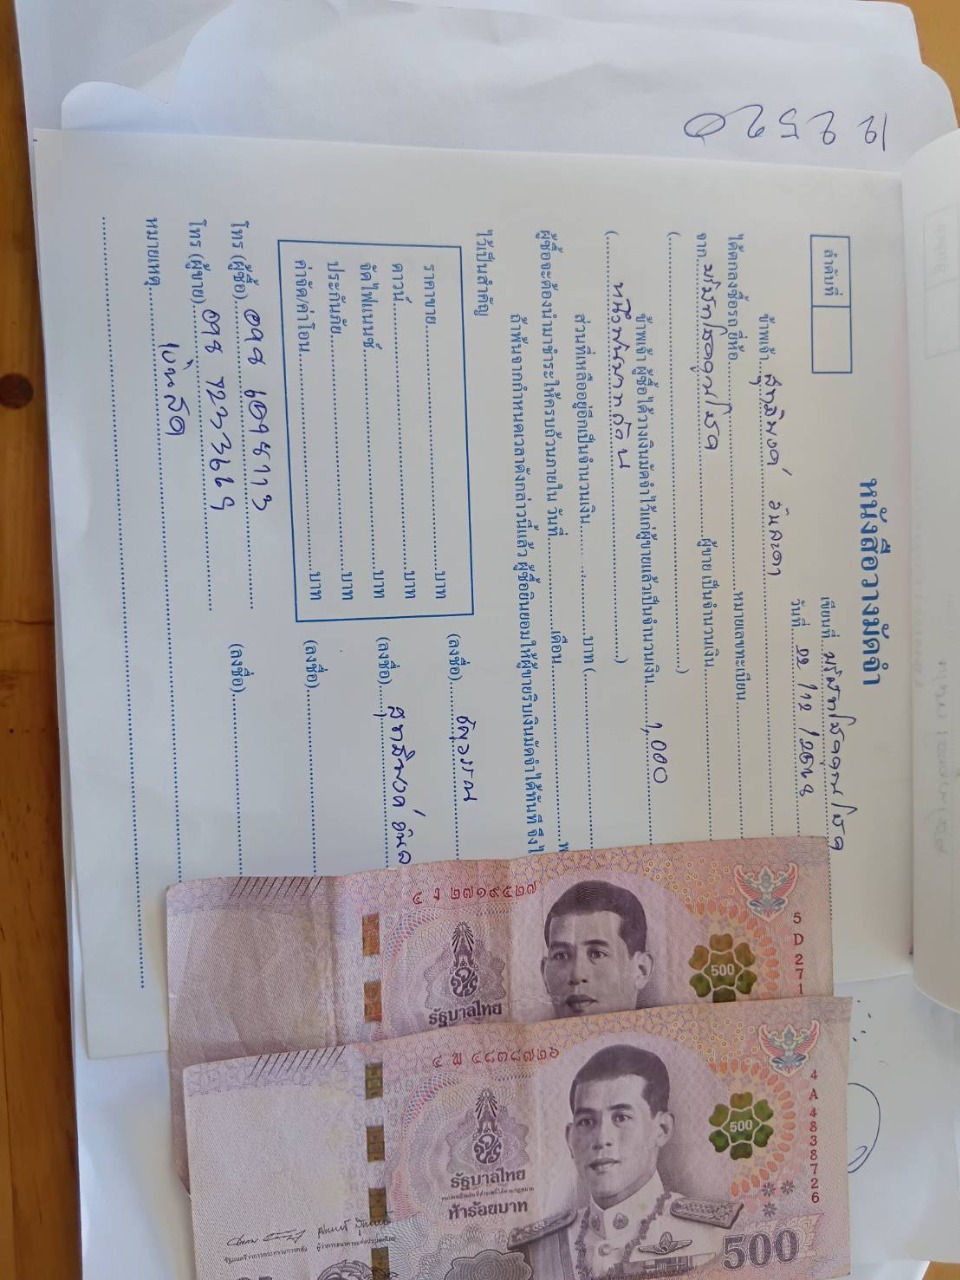 12 2520
หนังสือวางมัดจำ
เขียนที่
วันที่ 22 / 12 /
ลำดับที่
ข้าพเจ้า สุทธิพงค์ อินละดา
ได้ตกลงซื้อรถ ยี่ห้อ หมายเลขทะเบียน
จาก ผู้ขาย เป็นจำนวนเงิน
( )
ข้าพเจ้า ผู้ซื้อได้วางเงินมัดจำไว้แก่ผู้ขายแล้วเป็นจำนวนเงิน 1,000
( หนึ่งพันบาทถ้วน )
ส่วนที่เหลืออยู่อีกเป็นจำนวนเงิน บาท (
ผู้ซื้อจะต้องนำมาชำระให้ครบถ้วนภายใน วันที่ เดือน
ถ้าพ้นจากกำหนดเวลาดังกล่าวนี้แล้ว ผู้ซื้อยินยอมให้ผู้ขายริบเงินมัดจำได้ทันที จึงไ
ไว้เป็นสำคัญ
ราคาขาย บาท
ดาวน์ บาท
จัดไฟแนนซ์ บาท
ประกันภัย บาท
ค่าจัด/ค่าโอน บาท
(ลงชื่อ)
(ลงชื่อ) สุทธิพงค์ อินล
(ลงชื่อ)
(ลงชื่อ)
โทร (ผู้ซื้อ)
โทร (ผู้ขาย)
หมายเหตุ
๕ ง ๒๗๑๙๕๒๗
5 D 271
500
รัฐบาลไทย
๔ พ ๔๘๓๘๗๒๖
4 A 4838726
500
รัฐบาลไทย
ห้าร้อยบาท
500